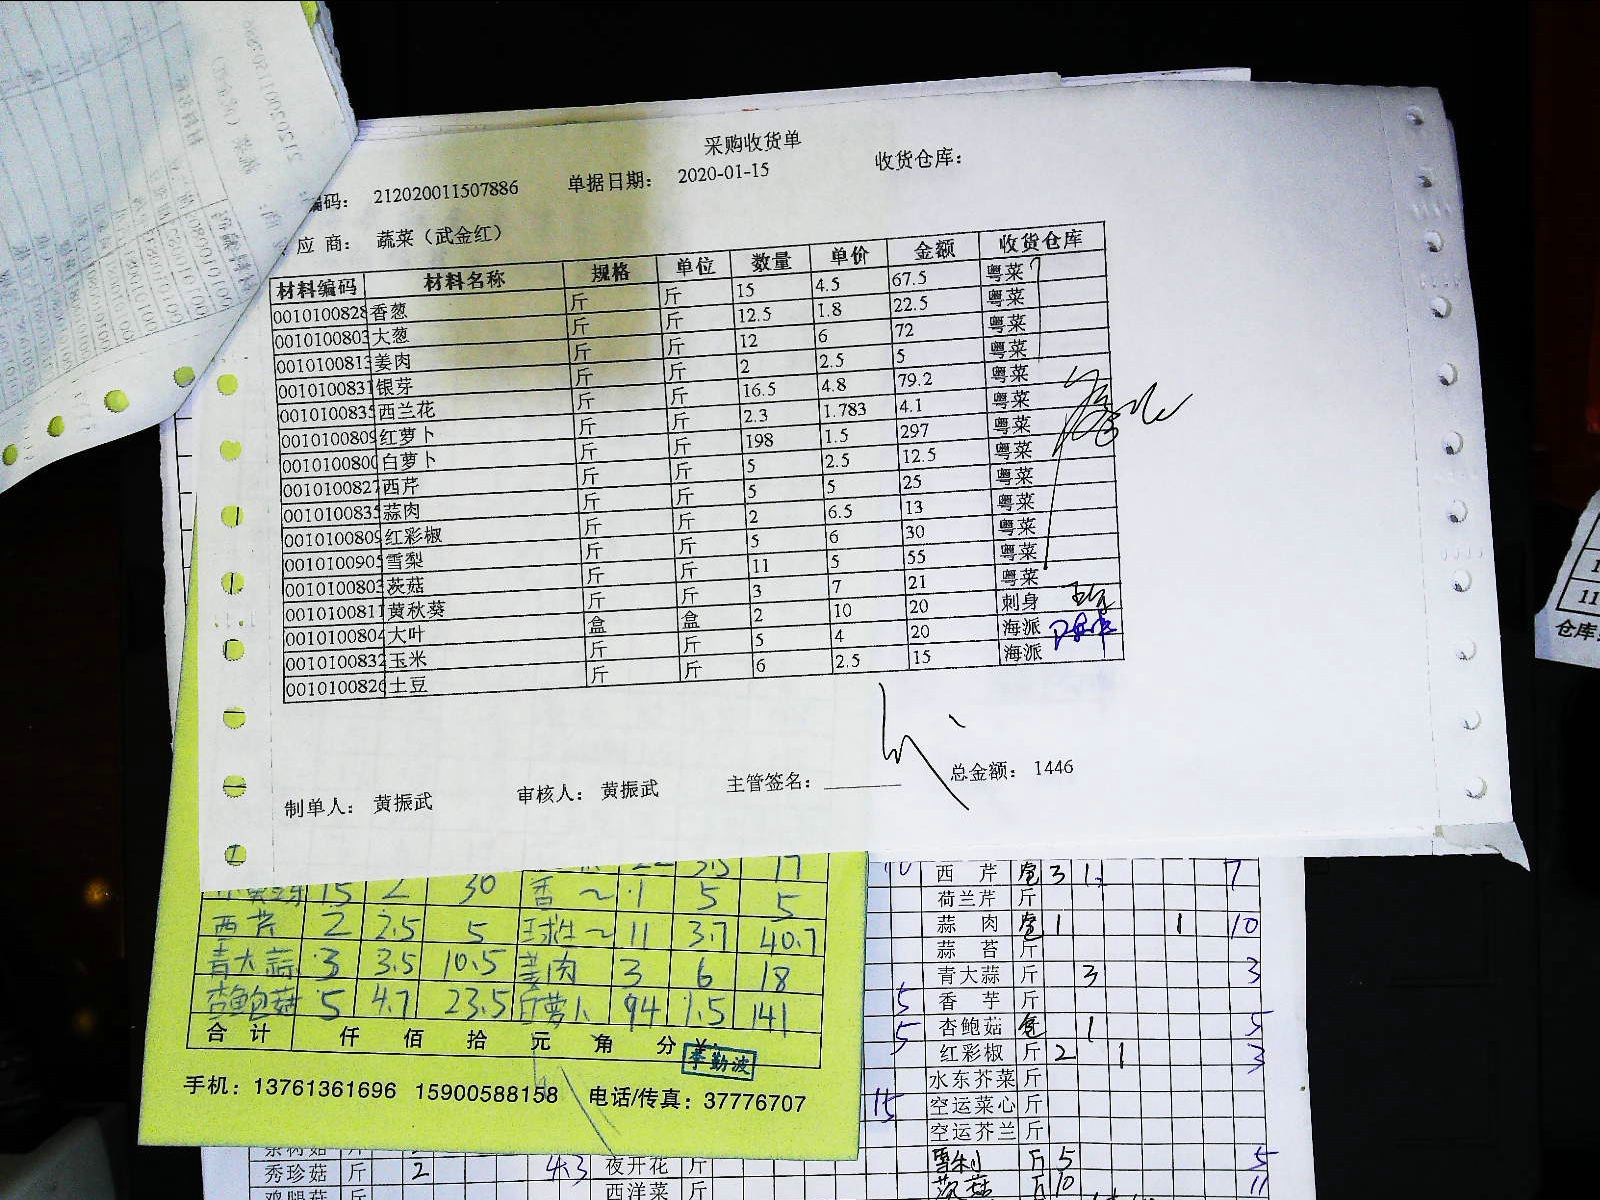 采购收货单
编码： 212020011507886 单据日期： 2020-01-15 收货仓库：
应 商： 蔬菜（武金红）
材料编码 材料名称 规格 单位 数量 单价 金额 收货仓库
0010100828 香葱 斤 斤 15 4.5 67.5 粤菜
0010100803 大葱 斤 斤 12.5 1.8 22.5 粤菜
0010100813 姜肉 斤 斤 12 6 72 粤菜
0010100831 银芽 斤 斤 2 2.5 5 粤菜
0010100835 西兰花 斤 斤 16.5 4.8 79.2 粤菜
0010100809 红萝卜 斤 斤 2.3 1.783 4.1 粤菜
0010100800 白萝卜 斤 斤 198 1.5 297 粤菜
0010100827 西芹 斤 斤 5 2.5 12.5 粤菜
0010100835 蒜肉 斤 斤 5 5 25 粤菜
0010100809 红彩椒 斤 斤 2 6.5 13 粤菜
0010100905 雪梨 斤 斤 5 6 30 粤菜
0010100803 茨菇 斤 斤 11 5 55 粤菜
0010100811 黄秋葵 斤 斤 3 7 21 粤菜
0010100804 大叶 盒 盒 2 10 20 刺身
0010100832 玉米 斤 斤 5 4 20 海派
0010100826 土豆 斤 斤 6 2.5 15 海派
制单人： 黄振武 审核人： 黄振武 主管签名： 总金额： 1446
15 2 30 香 ～ 1 5 5
西芹 2 2.5 5 ～ 11 3.7 40.7
青大蒜 3 3.5 10.5 姜肉 3 6 18
杏鲍菇 5 4.7 23.5 白萝卜 94 1.5 141
合 计 仟 佰 拾 元 角 分 ¥:
李勤波
手机：13761361696 15900588158 电话/传真：37776707
西 芹 3 1 7
荷兰芹 斤
蒜 肉 1 1 10
蒜 苔 斤
青大蒜 斤 3 3
5 香 芋 斤
5 杏鲍菇 1 5
红彩椒 斤 2 1 3
水东芥菜 斤
15 空运菜心 斤
空运芥兰 斤
雪利 斤 5 5
茨菇 斤 10 11
秀珍菇 斤 2 4.3 夜开花 斤
鸡腿菇 斤 西洋菜 斤
仓库: